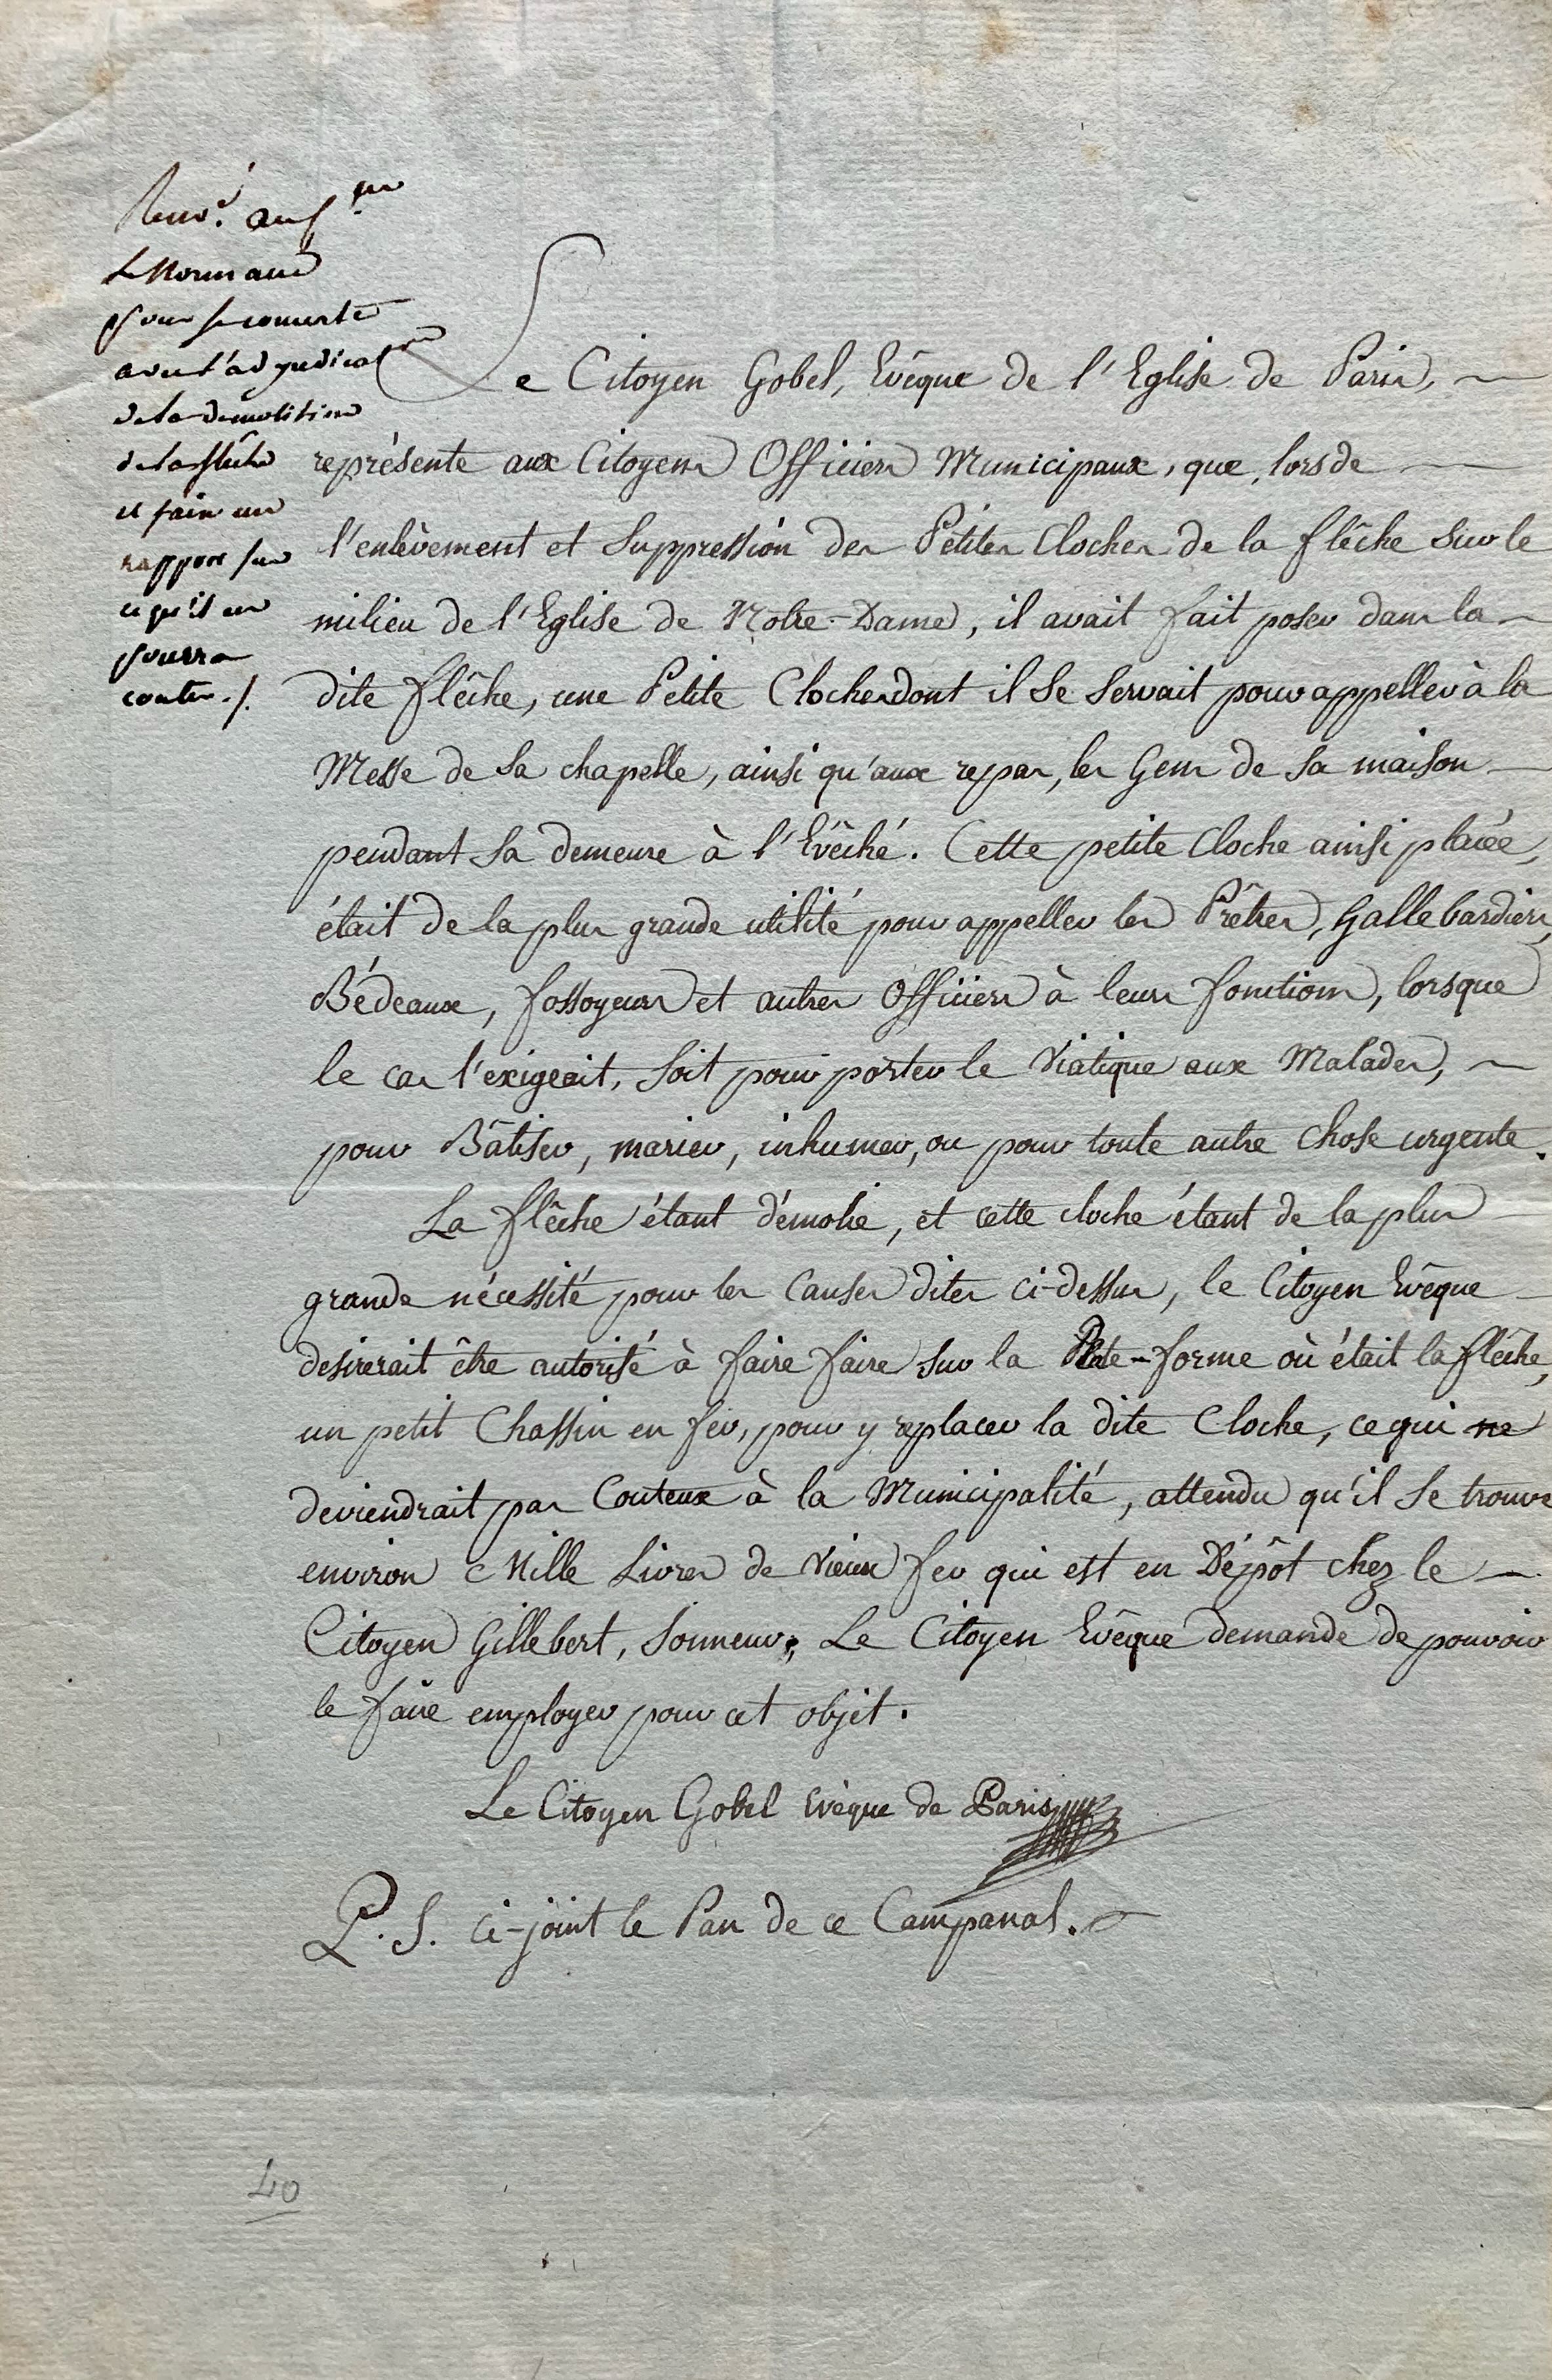 Renv.é au S.
Le Normand
pour se concerter
avec l'adjudicat.re
de la démolition
de la flêche
et faire un
rapport sur
ce qu'il en
pourra
couter ./.
Le Citoyen Gobel, Evêque de l'Eglise de Paris,
représente aux Citoyens Officiers Municipaux, que, lors de
l'enlèvement et Suppression des Petites Cloches de la flêche sur le
milieu de l'Eglise de Notre-Dame, il avait fait poser dans la
dite flêche, une Petite Cloche dont il se servait pour appeller à la
Messe de sa chapelle, ainsi qu'aux repas, les Gens de sa maison
pendant sa demeure à l'Evêché. Cette petite Cloche ainsi placée,
était de la plus grande utilité pour appeller les Prêtres, Gallebardiers,
Bédeaux, fossoyeurs et autres Officiers à leurs fonctions, lorsque
le cas l'exigeait, Soit pour porter le Viatique aux Malades,
pour Bâtiser, marier, inhumer, ou pour toute autre chose urgente.
La flêche étant démolie, et cette cloche étant de la plus
grande nécessité pour les causes dites ci-dessus, le Citoyen Evêque
desirerait être autorisé à faire faire sur la Plate-forme où était la flêche,
un petit Chassin en fer, pour y replacer la dite Cloche, ce qui ne
deviendrait pas Couteux à la Municipalité, attendu qu'il se trouve
environ Mille Livres de vieux fer qui est en Dépôt chez le
Citoyen Gillebert, Sonneur; Le Citoyen Evêque demande de pouvoir
le faire employer pour cet objet.
Le Citoyen Gobel Evêque de Paris
P.S. ci-joint le Pan de ce Campanal.
40